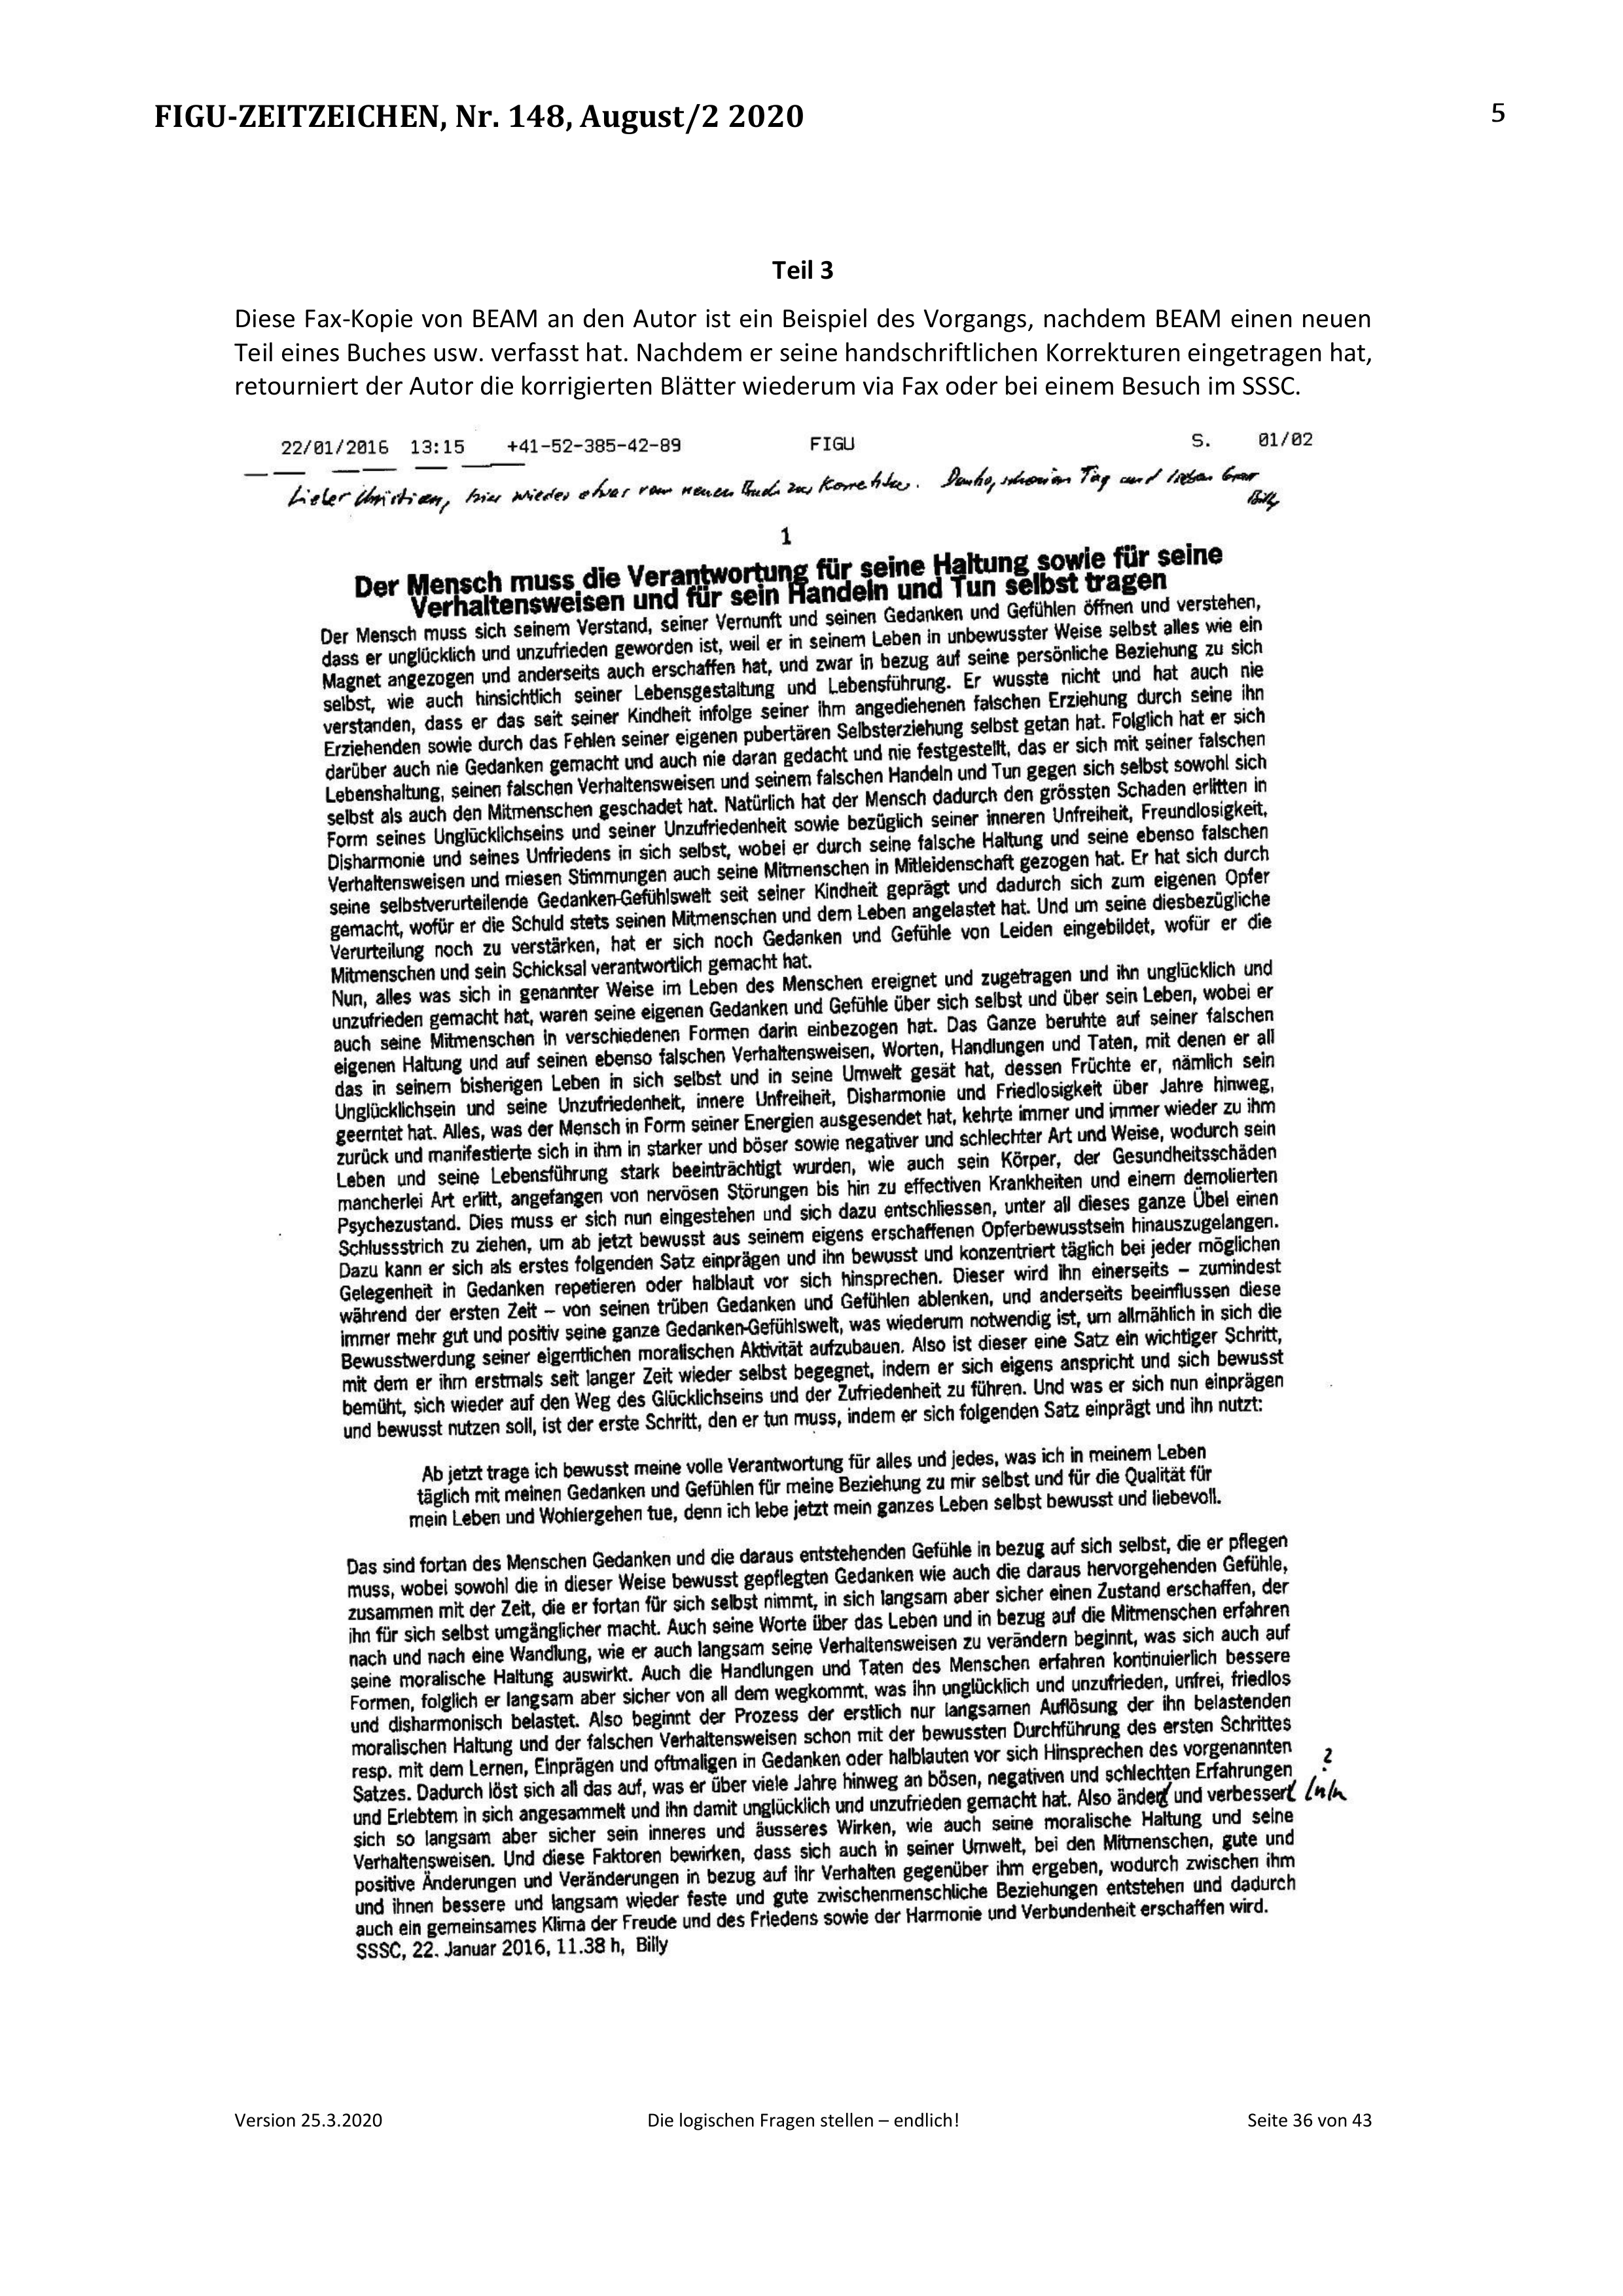 FIGU-ZEITZEICHEN, Nr. 148, August/2 2020
5
Teil 3
Diese Fax-Kopie von BEAM an den Autor ist ein Beispiel des Vorgangs, nachdem BEAM einen neuen
Teil eines Buches usw. verfasst hat. Nachdem er seine handschriftlichen Korrekturen eingetragen hat,
retourniert der Autor die korrigierten Blätter wiederum via Fax oder bei einem Besuch im SSSC.
22/01/2016 13:15 +41-52-385-42-89 FIGU S. 01/02
Lieber Christian, hier wieder etwas vom neuen Buch zur Korrektur. Danke, schönen Tag und lieben Gruss
Billy
1
Der Mensch muss die Verantwortung für seine Haltung sowie für seine
Verhaltensweisen und für sein Handeln und Tun selbst tragen
Der Mensch muss sich seinem Verstand, seiner Vernunft und seinen Gedanken und Gefühlen öffnen und verstehen,
dass er unglücklich und unzufrieden geworden ist, weil er in seinem Leben in unbewusster Weise selbst alles wie ein
Magnet angezogen und anderseits auch erschaffen hat, und zwar in bezug auf seine persönliche Beziehung zu sich
selbst, wie auch hinsichtlich seiner Lebensgestaltung und Lebensführung. Er wusste nicht und hat auch nie
verstanden, dass er das seit seiner Kindheit infolge seiner ihm angediehenen falschen Erziehung durch seine ihn
Erziehenden sowie durch das Fehlen seiner eigenen pubertären Selbsterziehung selbst getan hat. Folglich hat er sich
darüber auch nie Gedanken gemacht und auch nie daran gedacht und nie festgestellt, das er sich mit seiner falschen
Lebenshaltung, seinen falschen Verhaltensweisen und seinem falschen Handeln und Tun gegen sich selbst sowohl sich
selbst als auch den Mitmenschen geschadet hat. Natürlich hat der Mensch dadurch den grössten Schaden erlitten in
Form seines Unglücklichseins und seiner Unzufriedenheit sowie bezüglich seiner inneren Unfreiheit, Freundlosigkeit,
Disharmonie und seines Unfriedens in sich selbst, wobei er durch seine falsche Haltung und seine ebenso falschen
Verhaltensweisen und miesen Stimmungen auch seine Mitmenschen in Mitleidenschaft gezogen hat. Er hat sich durch
seine selbstverurteilende Gedanken-Gefühlswelt seit seiner Kindheit geprägt und dadurch sich zum eigenen Opfer
gemacht, wofür er die Schuld stets seinen Mitmenschen und dem Leben angelastet hat. Und um seine diesbezügliche
Verurteilung noch zu verstärken, hat er sich noch Gedanken und Gefühle von Leiden eingebildet, wofür er die
Mitmenschen und sein Schicksal verantwortlich gemacht hat.
Nun, alles was sich in genannter Weise im Leben des Menschen ereignet und zugetragen und ihn unglücklich und
unzufrieden gemacht hat, waren seine eigenen Gedanken und Gefühle über sich selbst und über sein Leben, wobei er
auch seine Mitmenschen in verschiedenen Formen darin einbezogen hat. Das Ganze beruhte auf seiner falschen
eigenen Haltung und auf seinen ebenso falschen Verhaltensweisen, Worten, Handlungen und Taten, mit denen er all
das in seinem bisherigen Leben in sich selbst und in seine Umwelt gesät hat, dessen Früchte er, nämlich sein
Unglücklichsein und seine Unzufriedenheit, innere Unfreiheit, Disharmonie und Friedlosigkeit über Jahre hinweg,
geerntet hat. Alles, was der Mensch in Form seiner Energien ausgesendet hat, kehrte immer und immer wieder zu ihm
zurück und manifestierte sich in ihm in starker und böser sowie negativer und schlechter Art und Weise, wodurch sein
Leben und seine Lebensführung stark beeinträchtigt wurden, wie auch sein Körper, der Gesundheitsschäden
mancherlei Art erlitt, angefangen von nervösen Störungen bis hin zu effectiven Krankheiten und einem demolierten
Psychezustand. Dies muss er sich nun eingestehen und sich dazu entschliessen, unter all dieses ganze Übel einen
Schlussstrich zu ziehen, um ab jetzt bewusst aus seinem eigens erschaffenen Opferbewusstsein hinauszugelangen.
Dazu kann er sich als erstes folgenden Satz einprägen und ihn bewusst und konzentriert täglich bei jeder möglichen
Gelegenheit in Gedanken repetieren oder halblaut vor sich hinsprechen. Dieser wird ihn einerseits – zumindest
während der ersten Zeit – von seinen trüben Gedanken und Gefühlen ablenken, und anderseits beeinflussen diese
immer mehr gut und positiv seine ganze Gedanken-Gefühlswelt, was wiederum notwendig ist, um allmählich in sich die
Bewusstwerdung seiner eigentlichen moralischen Aktivität aufzubauen. Also ist dieser eine Satz ein wichtiger Schritt,
mit dem er ihm erstmals seit langer Zeit wieder selbst begegnet, indem er sich eigens anspricht und sich bewusst
bemüht, sich wieder auf den Weg des Glücklichseins und der Zufriedenheit zu führen. Und was er sich nun einprägen
und bewusst nutzen soll, ist der erste Schritt, den er tun muss, indem er sich folgenden Satz einprägt und ihn nutzt:
Ab jetzt trage ich bewusst meine volle Verantwortung für alles und jedes, was ich in meinem Leben
täglich mit meinen Gedanken und Gefühlen für meine Beziehung zu mir selbst und für die Qualität für
mein Leben und Wohlergehen tue, denn ich lebe jetzt mein ganzes Leben selbst bewusst und liebevoll.
Das sind fortan des Menschen Gedanken und die daraus entstehenden Gefühle in bezug auf sich selbst, die er pflegen
muss, wobei sowohl die in dieser Weise bewusst gepflegten Gedanken wie auch die daraus hervorgehenden Gefühle,
zusammen mit der Zeit, die er fortan für sich selbst nimmt, in sich langsam aber sicher einen Zustand erschaffen, der
ihn für sich selbst umgänglicher macht. Auch seine Worte über das Leben und in bezug auf die Mitmenschen erfahren
nach und nach eine Wandlung, wie er auch langsam seine Verhaltensweisen zu verändern beginnt, was sich auch auf
seine moralische Haltung auswirkt. Auch die Handlungen und Taten des Menschen erfahren kontinuierlich bessere
Formen, folglich er langsam aber sicher von all dem wegkommt, was ihn unglücklich und unzufrieden, unfrei, friedlos
und disharmonisch belastet. Also beginnt der Prozess der erstlich nur langsamen Auflösung der ihn belastenden
moralischen Haltung und der falschen Verhaltensweisen schon mit der bewussten Durchführung des ersten Schrittes
resp. mit dem Lernen, Einprägen und oftmaligen in Gedanken oder halblauten vor sich Hinsprechen des vorgenannten ?
Satzes. Dadurch löst sich all das auf, was er über viele Jahre hinweg an bösen, negativen und schlechten Erfahrungen
und Erlebtem in sich angesammelt und ihn damit unglücklich und unzufrieden gemacht hat. Also ändert und verbessert ln/n
sich so langsam aber sicher sein inneres und äusseres Wirken, wie auch seine moralische Haltung und seine
Verhaltensweisen. Und diese Faktoren bewirken, dass sich auch in seiner Umwelt, bei den Mitmenschen, gute und
positive Änderungen und Veränderungen in bezug auf ihr Verhalten gegenüber ihm ergeben, wodurch zwischen ihm
und ihnen bessere und langsam wieder feste und gute zwischenmenschliche Beziehungen entstehen und dadurch
auch ein gemeinsames Klima der Freude und des Friedens sowie der Harmonie und Verbundenheit erschaffen wird.
SSSC, 22. Januar 2016, 11.38 h, Billy
Version 25.3.2020 Die logischen Fragen stellen – endlich! Seite 36 von 43